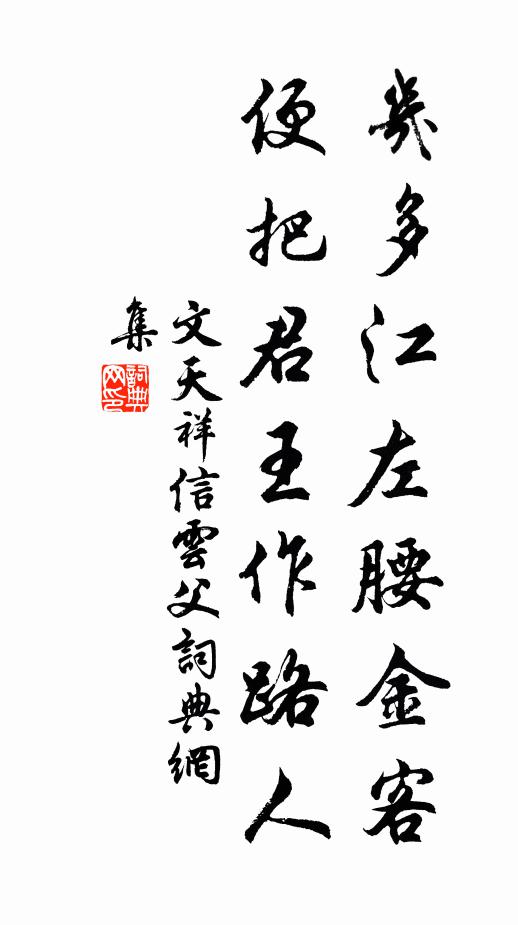 幾多江左腰金客
便把君王作路人
文天祥信雲父詞典網
集
詞典
网印